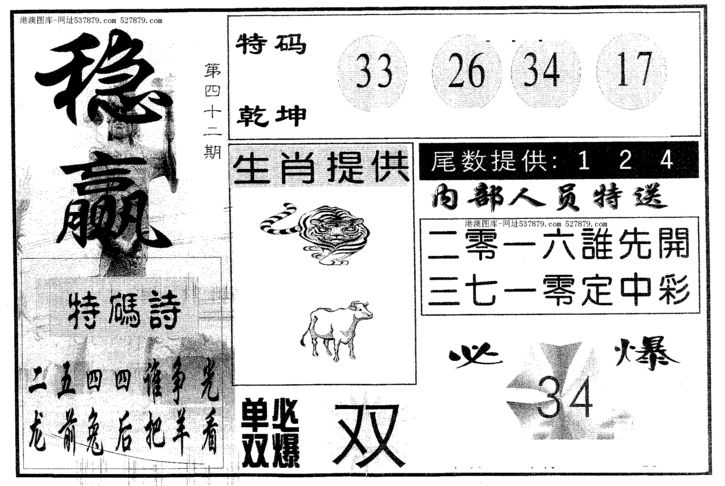 港澳图库-网址537879.com 527879.com
稳赢
第四十二期
特码诗
二五四四谁争光
龙前兔后把羊看
特码
乾坤
33 26 34 17
生肖提供
单双必爆
双
尾数提供: 1 2 4
内部人员特送
港澳图库-网址537879.com 527879.com
二零一六誰先開
三七一零定中彩
必爆
34